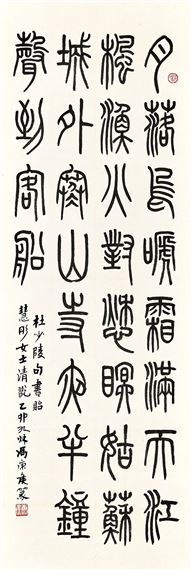 月落烏啼霜滿天江
楓漁火對愁眠姑蘇
城外寒山寺夜半鐘
聲到客船
杜少陵句書貽
慧彤女士清說 乙卯九秋馮康侯篆